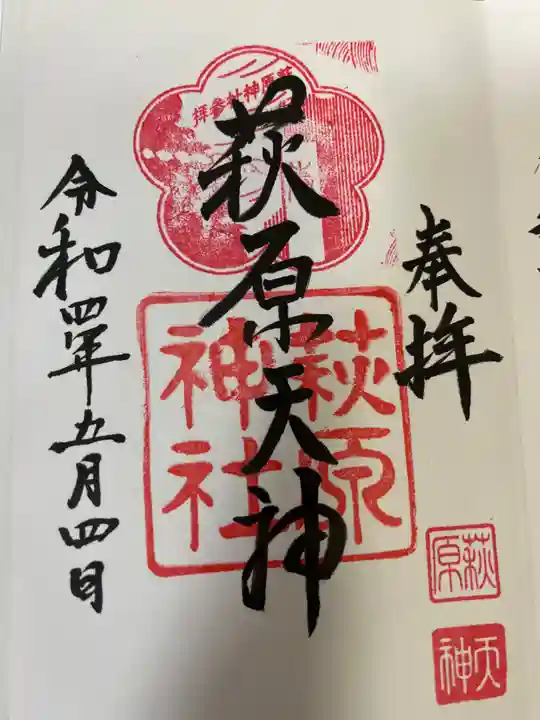 奉拝
萩原天神
令和四年五月四日
萩原神社参拝
萩原
神社
萩原
天神